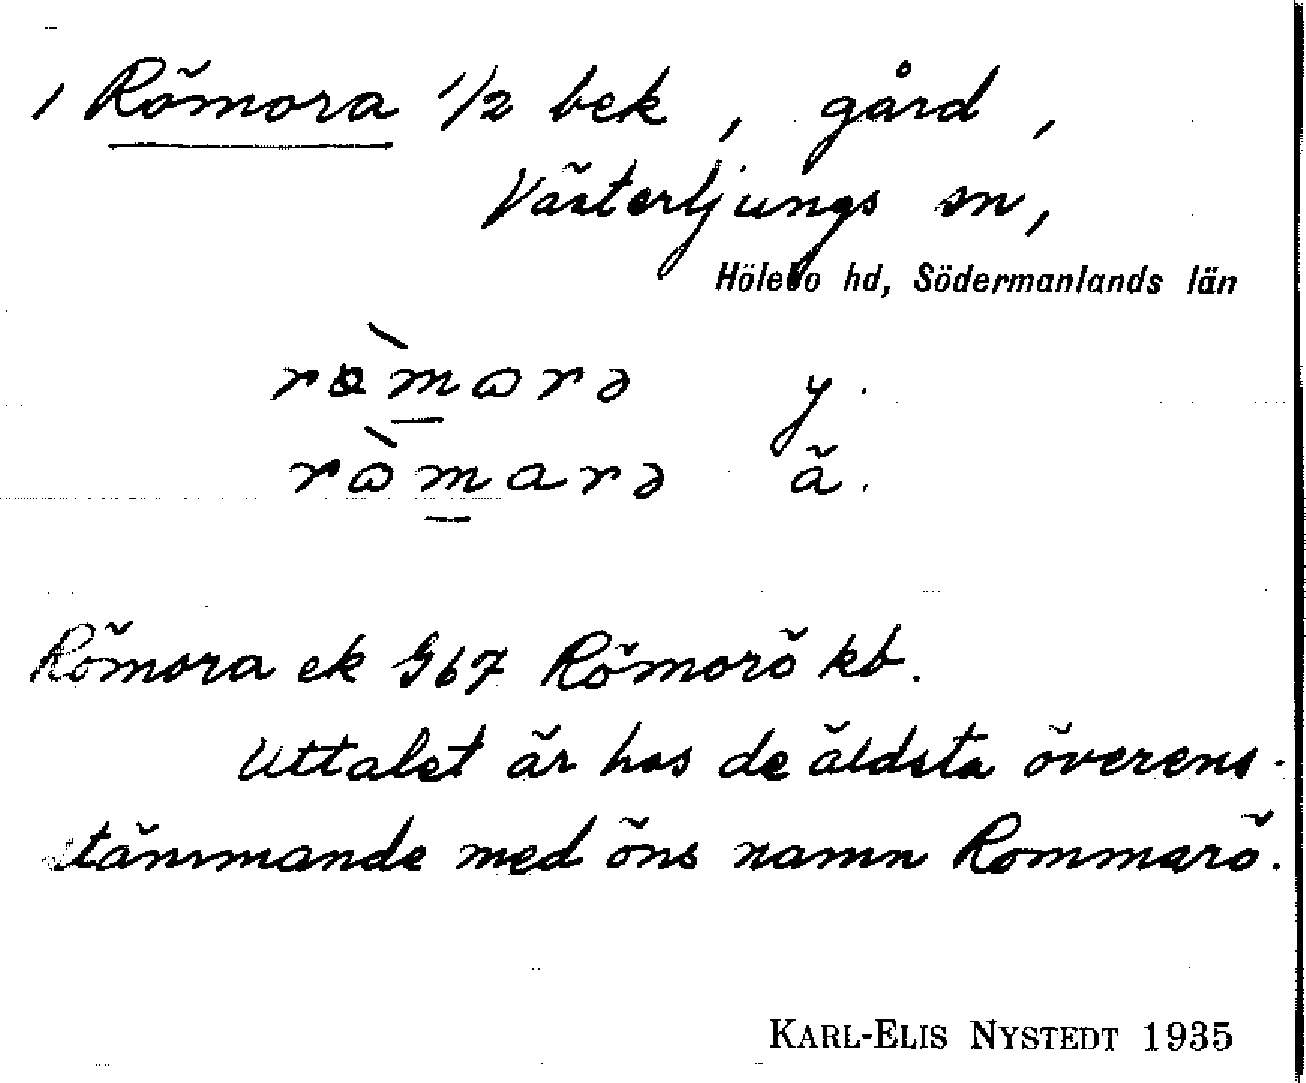 1 Römora 1/2 bek, gård,
Västerljungs sn,
Hölebo hd, Södermanlands län
ròmɷrə y.
rɷ̀marə ä.
Römora ek G67 Römorö kb.
Uttalet är hos de äldsta överens-
stämmande med öns namn Rommarö.
KARL-ELIS NYSTEDT 1935